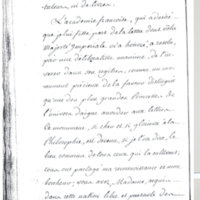 talens, ni de lieux.
L'académie françoise, qui a désiré
que je lui fisse part de la lettre dont votre
Majesté Impériale m'a honoré, a résolu,
par une délibération unanime, de l'in-
serer dans ses registres, comme un monu-
ment précieux de la faveur distinguée
qu'une des plus grandes Princesses de
l'univers daigne accorder aux lettres.
Ce monument, si cher et si glorieux à la
Philosophie, est devenu, si je l'ose dire, le
bien commun de tous ceux qui la cultivent,
tous ont partagé ma reconnoissance et mon
bonheur; vous avez, Madame, acquis
dans cette nation libre et pensante